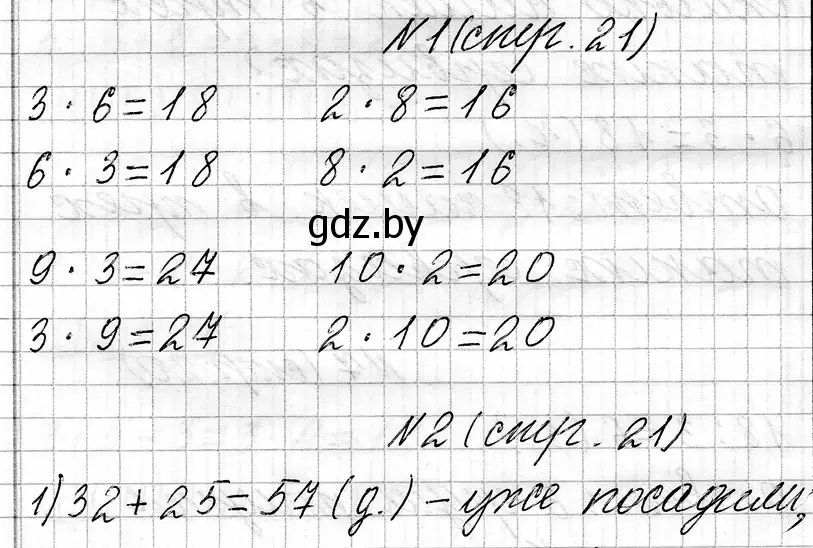 №1 (стр. 21)
3 · 6 = 18 2 · 8 = 16
6 · 3 = 18 8 · 2 = 16
gdz.by
9 · 3 = 27 10 · 2 = 20
3 · 9 = 27 2 · 10 = 20
№2 (стр. 21)
1) 32 + 25 = 57 (д.) – уже посадили;